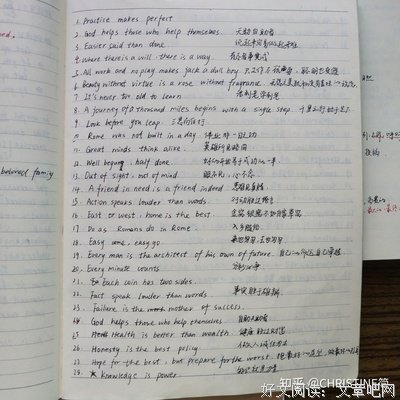 1. Practice makes perfect
2. God helps those who help themselves. 天助自助者
3. Easier said than done. 说起来容易做起来难
4. Where there is a will, there is a way. 有志者事竟成
5. All work and no play makes jack a dull boy.
6. Beauty without virtue is a rose without fragrance.
7. It's never too old to learn.
8. A journey of a thousand miles begins with a single step. 千里之行始于足下
9. Look before you leap. 三思而后行
10. Rome was not built in a day.
11. Great minds think alike. 英雄所见略同
12. Well begun, half done.
13. Out of sight, out of mind 眼不见,心不念
14. A friend in need is a friend indeed 患难见真情
15. Action speaks louder than words. 行动胜过语言
16. East or west, home is the best.
17. Do as Romans do in Rome. 入乡随俗
18. Easy come, easy go.
19. Every man is the architect of his own of future.
20. Every minute counts 分秒必争
21. Each coin has two sides.
22. Fact speak louder than words. 事实胜于雄辩
23. Failure is the mother of success.
24. God helps those who help themselves 自助者
25. Health is better than wealth. 健康
26. Honesty is the best policy.
27. Hope for the best, but prepare for the worst.
28. * Knowledge is power. 知识就是力量
beloved family
知乎 @CHRISTINE简
好文阅读:文章吧网